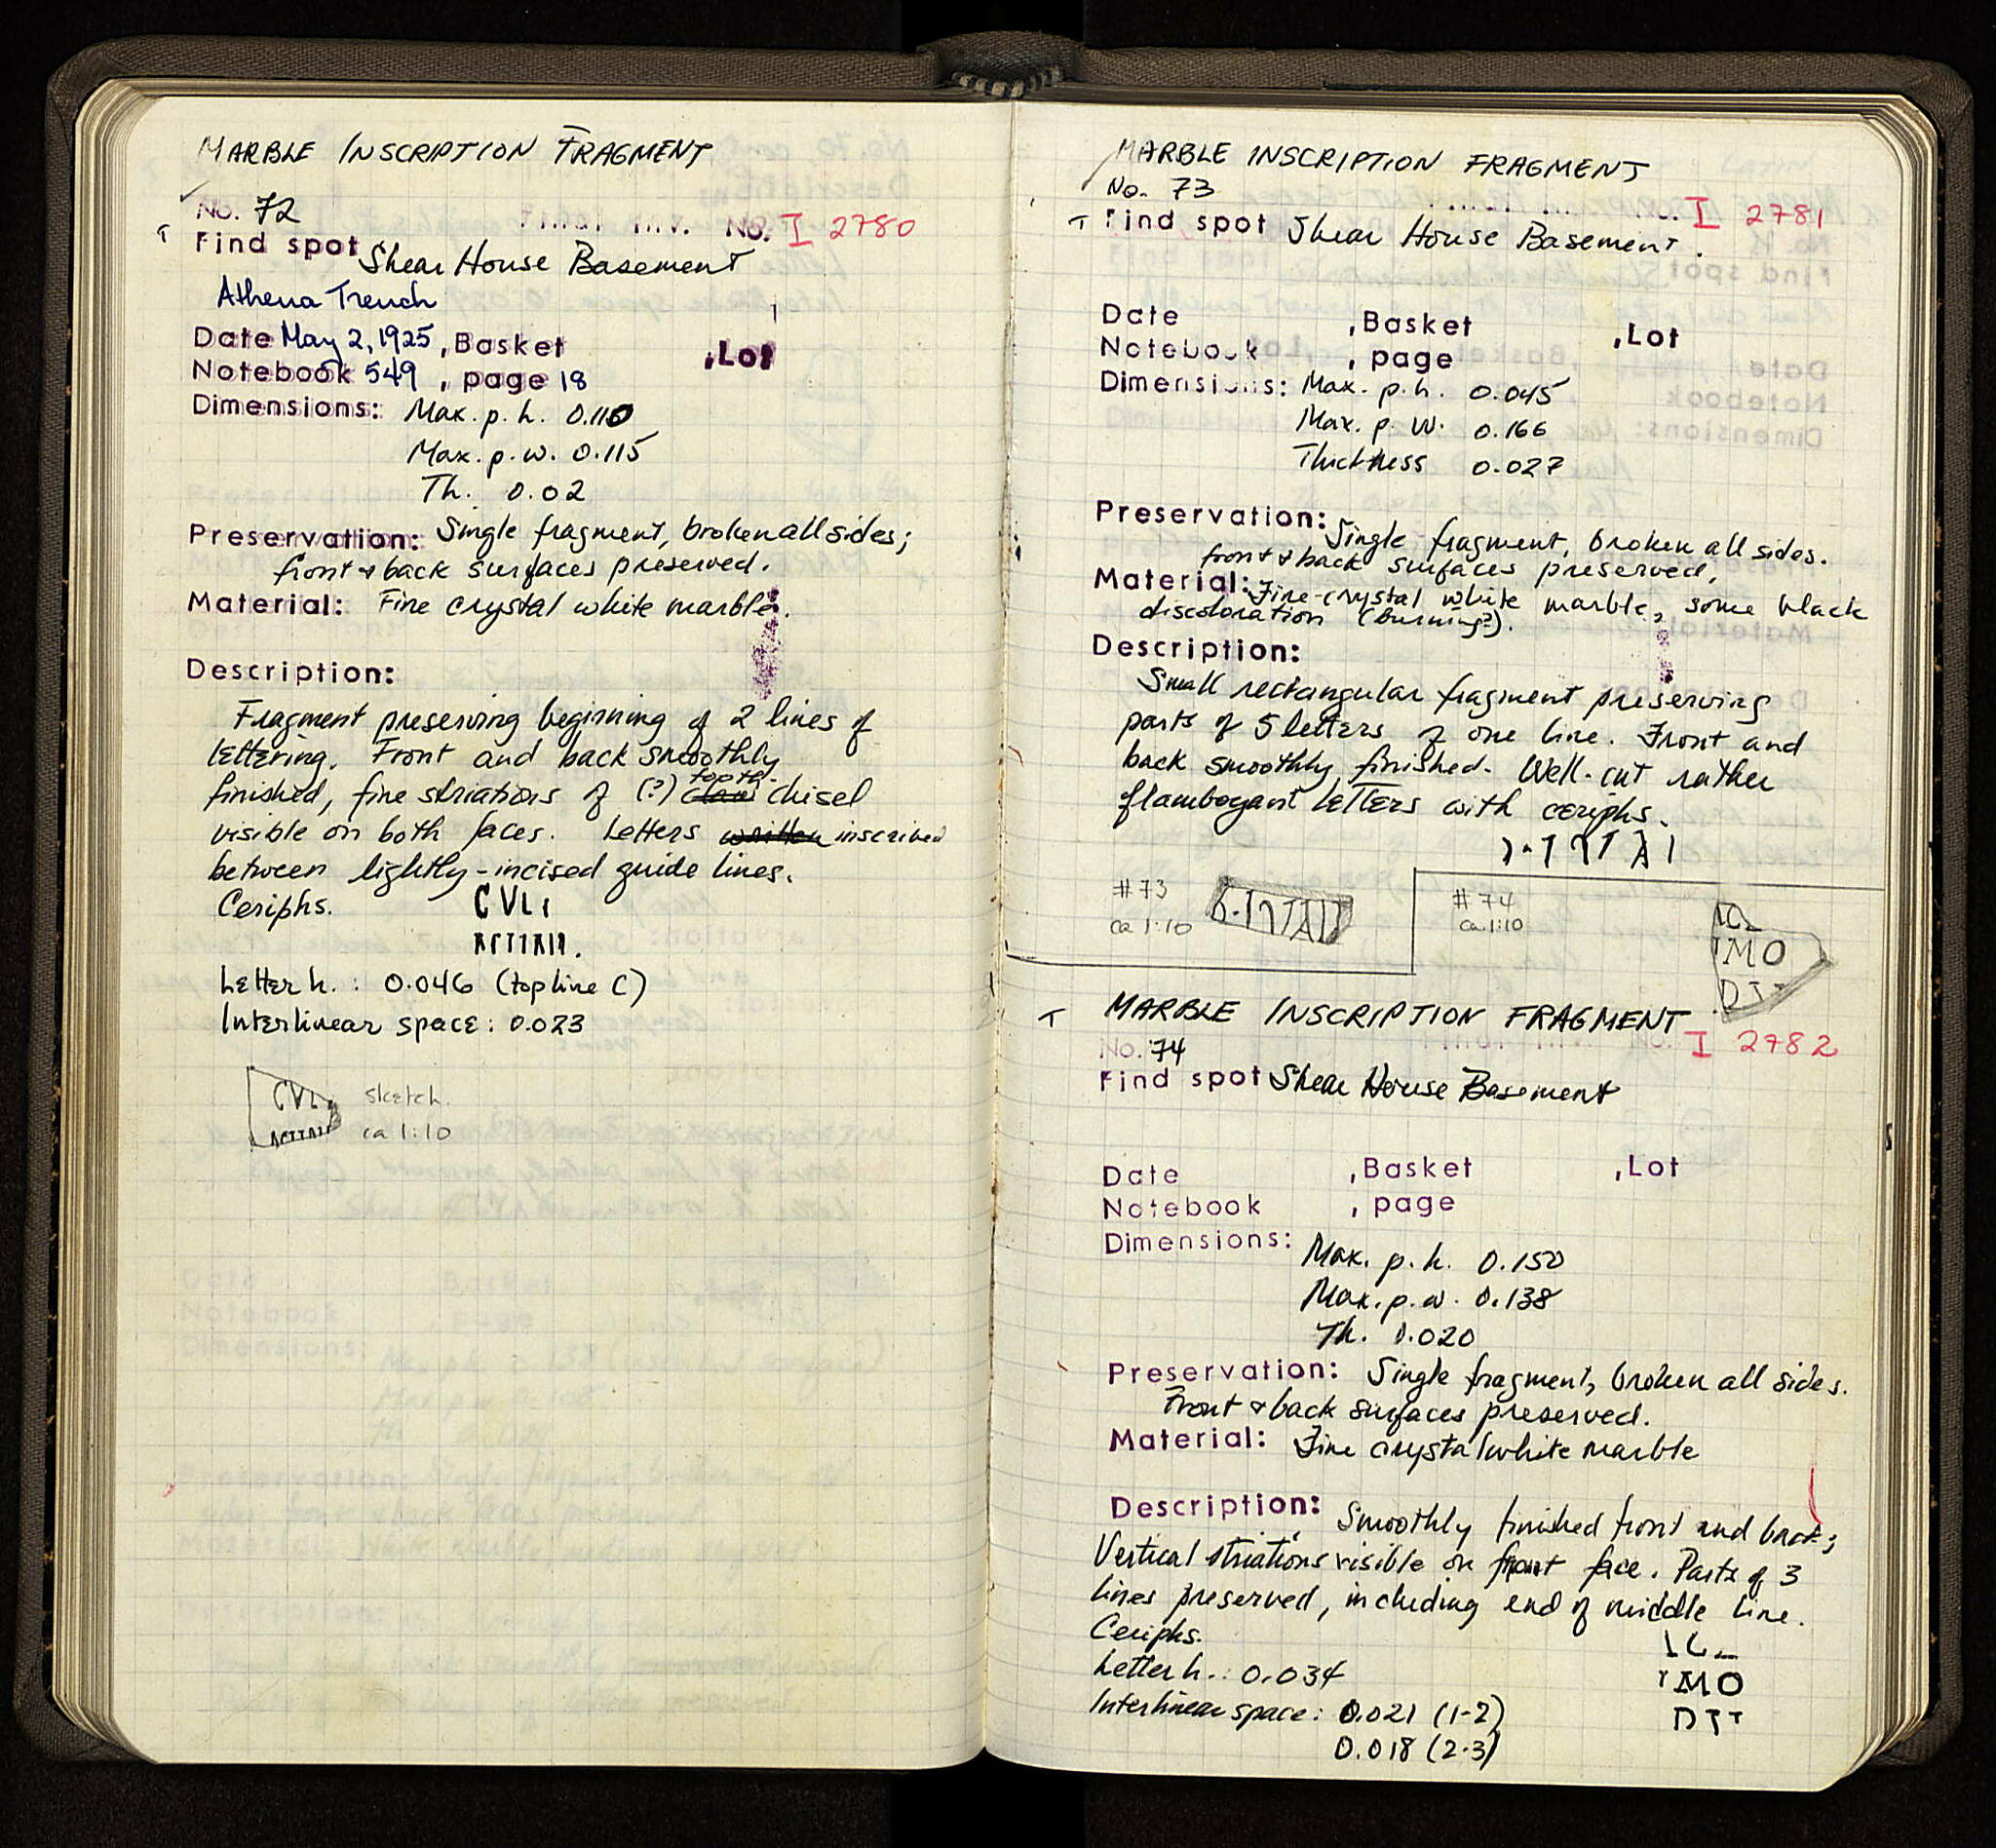 MARBLE INSCRIPTION FRAGMENT
No. 72
Final Inv. No. I 2780
T Find spot Shear House Basement
Athena Trench
Date May 2, 1925, Basket ,Lot
Notebook 549 , page 18
Dimensions: Max. p. h. 0.110
Max. p. w. 0.115
Th. 0.02
Preservation: Single fragment, broken all sides;
front & back surfaces preserved.
Material: Fine crystal white marble.
Description:
Fragment preserving beginning of 2 lines of
lettering. Front and back smoothly
finished, fine striations of (?) claw tooth chisel
visible on both faces. Letters written inscribed
between lightly-incised guide lines.
Ceriphs. CVL
Letter h. : 0.046 (top line C)
Interlinear space: 0.023
CVL sketch.
ca 1:10
MARBLE INSCRIPTION FRAGMENT
No. 73
I 2781
T Find spot Shear House Basement.
Date ,Basket ,Lot
Notebook , page
Dimensions: Max. p. h. 0.045
Max. p. w. 0.166
Thickness 0.027
Preservation: Single fragment, broken all sides.
front & back surfaces preserved,
Material: Fine-crystal white marble, some black
discoloration (burning?).
Description:
Small rectangular fragment preserving
parts of 5 letters of one line. Front and
back smoothly finished. Well-cut rather
flamboyant letters with ceriphs.
#73
ca 1:10
#74
ca. 1:10
IMO
T MARBLE INSCRIPTION FRAGMENT
No. 74
Final Inv. No. I 2782
Find spot Shear House Basement
Date ,Basket ,Lot
Notebook , page
Dimensions: Max. p. h. 0.150
Max. p. w. 0.138
Th. 0.020
Preservation: Single fragment, broken all sides.
Front & back surfaces preserved.
Material: Fine crystal white marble
Description: Smoothly finished front and back;
Vertical striations visible on front face. Parts of 3
lines preserved, including end of middle line.
Ceriphs.
Letter h.: 0.034
IMO
Interlinear space: 0.021 (1-2)
0.018 (2-3)